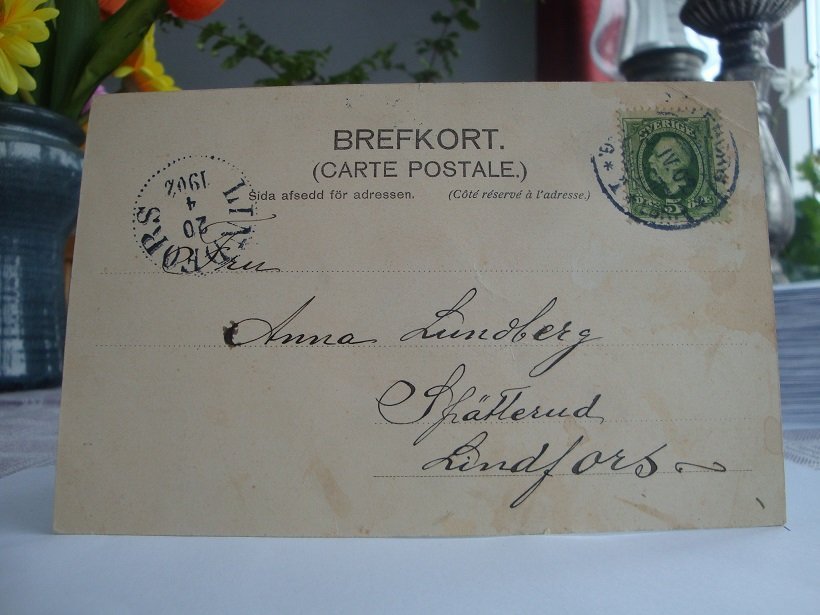 BREFKORT.
(CARTE POSTALE.)
Sida afsedd för adressen. (Côté réservé à l'adresse.)
SVERIGE
5
LINDFORS
20
4
1902
Fru
Anna Lundberg
Spätterud
Lindfors